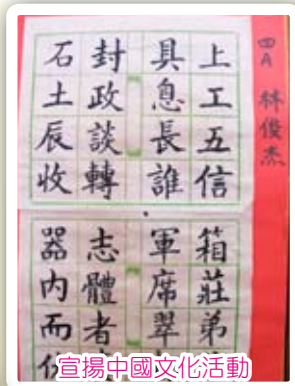 四A 林俊杰
上工五信
具息長誰
封政談轉
石土辰收
箱莊弟
軍席翠
志體者
器內而
宣揚中國文化活動